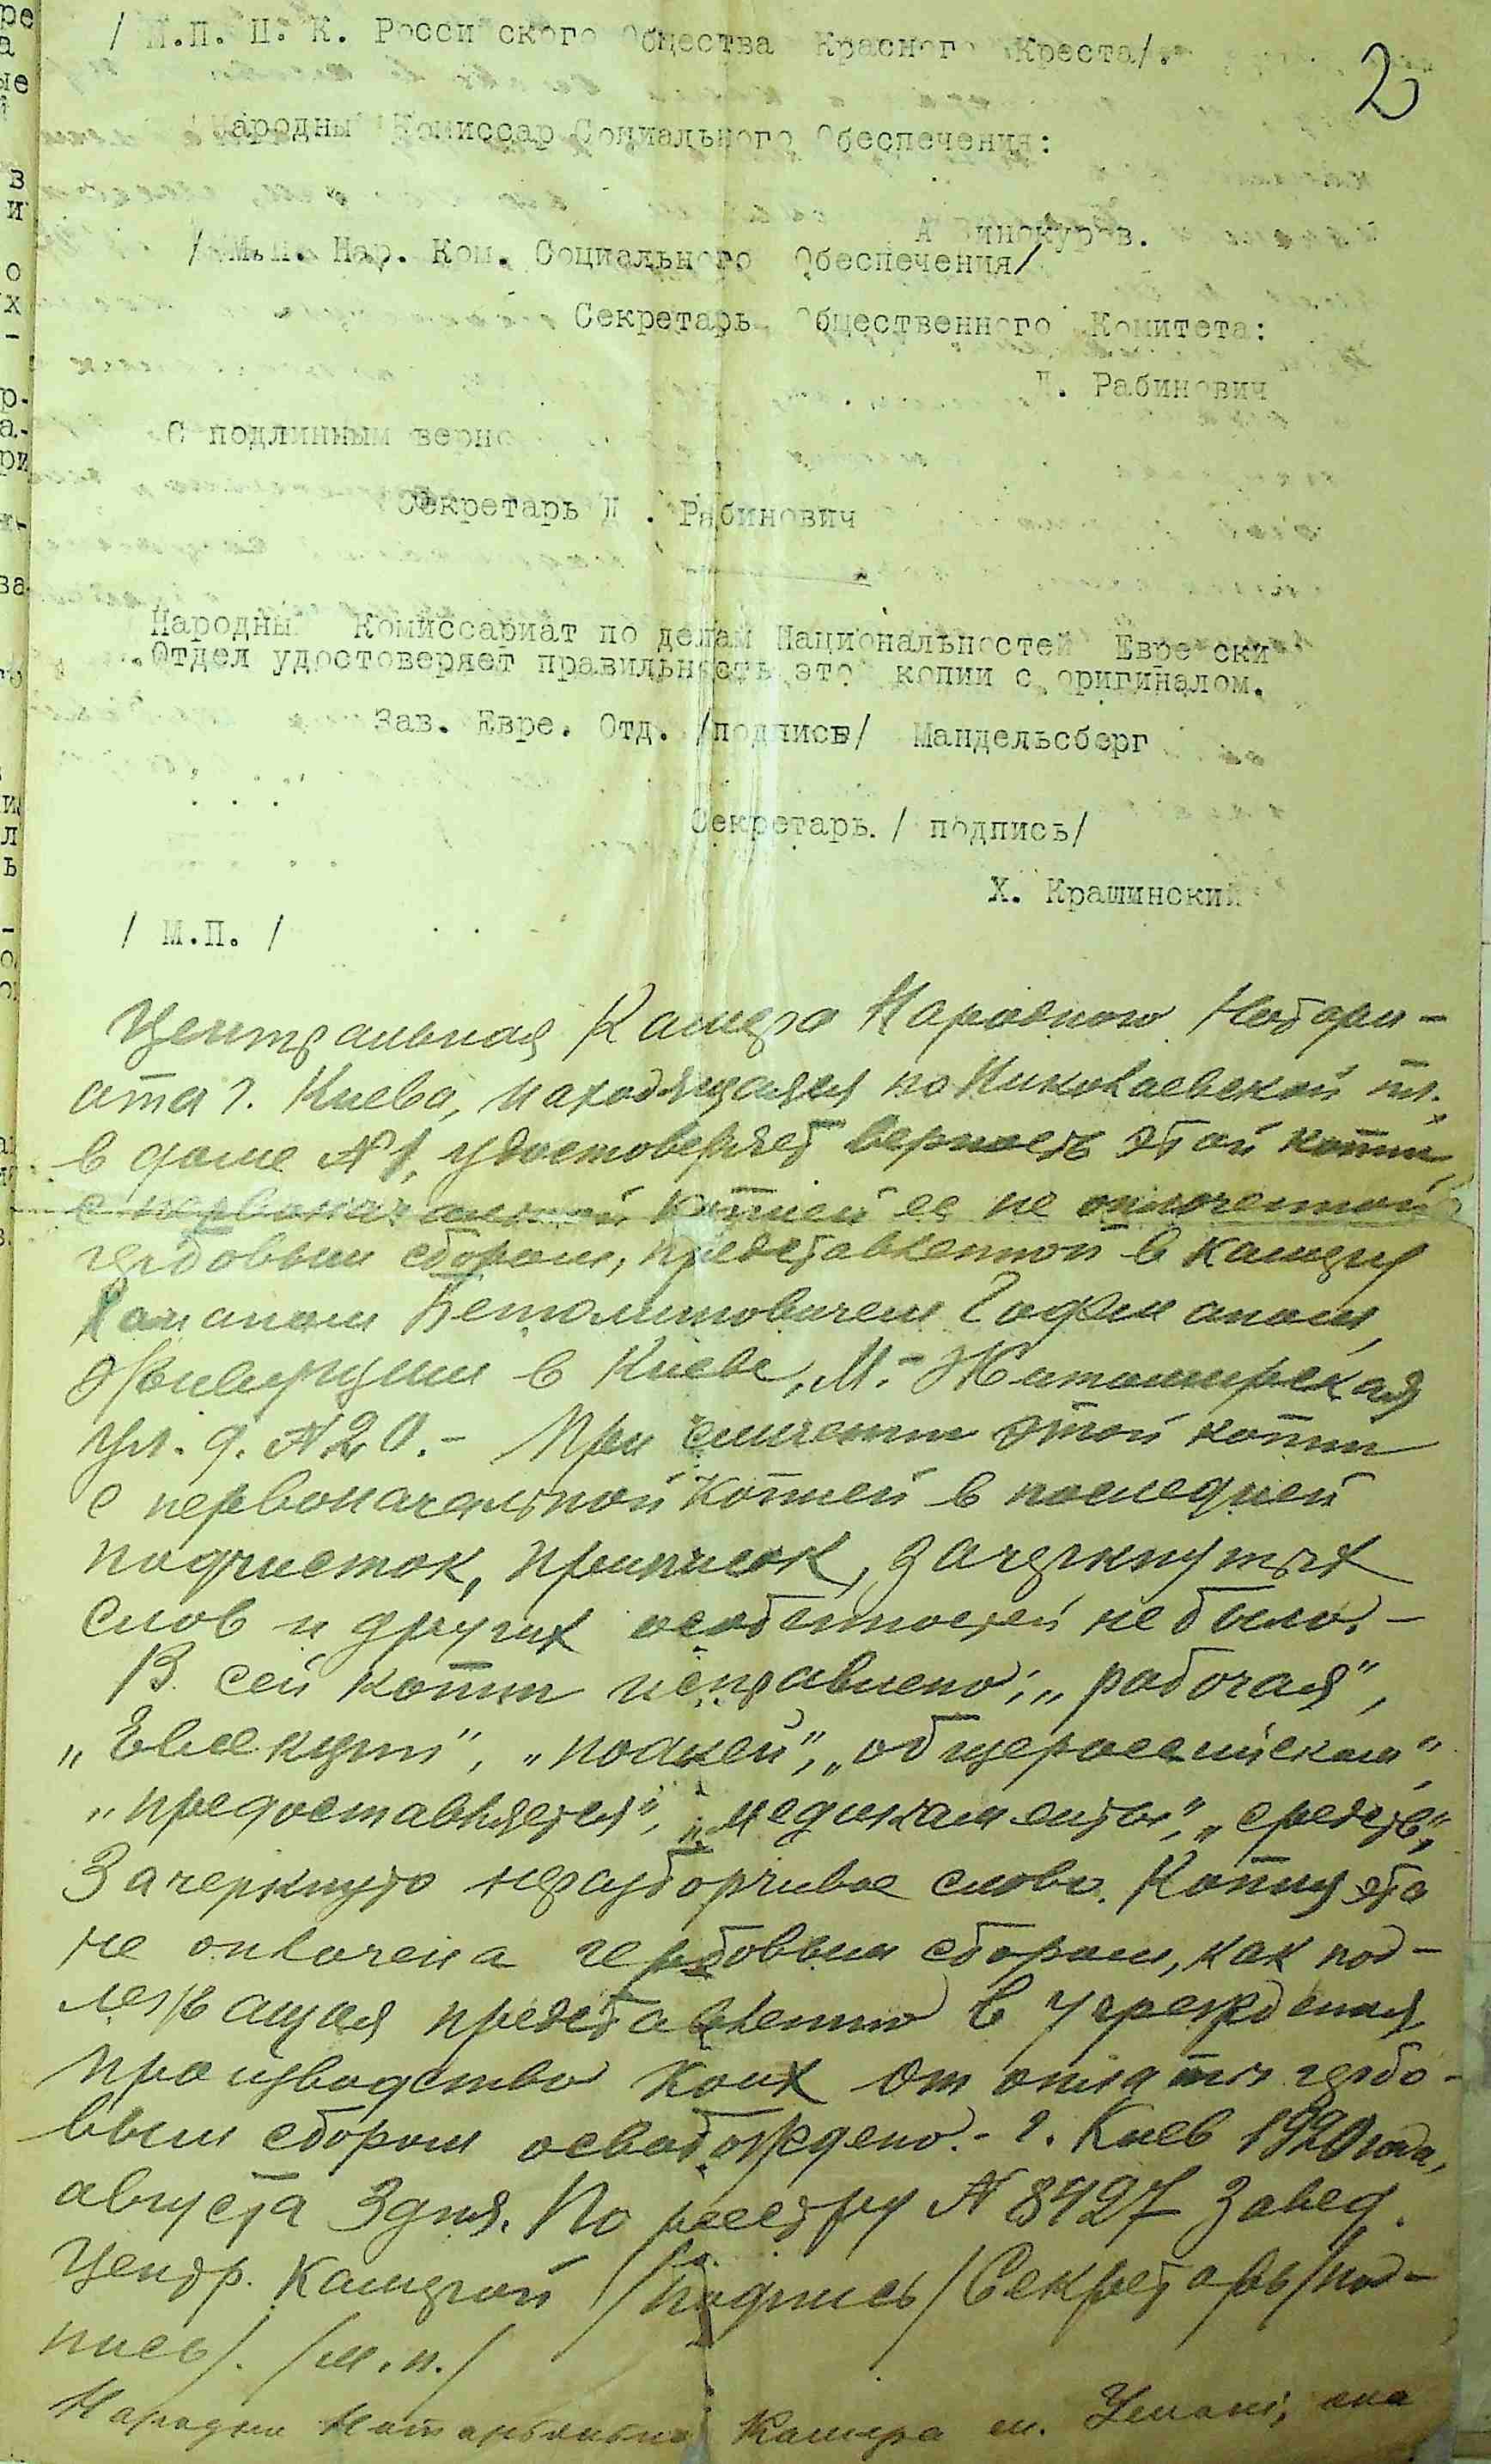 2
/ М.П. Ц. К. Росси ского Общества Красного Креста/.
Народны Комиссар Социального Обеспечения:
А Винокуров.
/ М.П. Нар. Ком. Социального Обеспечения/
Секретарь Общественного Комитета:
Рабинович
С подлинным верно
Секретарь Д . Рабинович
Народны Комиссариат по делам Национальностей Евре ски
Отдел удостоверяет правильность это копии с оригиналом.
Зав. Евре. Отд. /подпись/ Мандельсберг
Секретарь. / подпись/
Х. Крашинский
/ М.П. /
Центральная Камера Народного Нотари-
ата г. Киева, находящаяся по Николаевской пл.
в доме №1, удостоверяет верность этой копии
с первоначальной копией ее не оплоченной
гербовым сбором, представленной в камеру
Гофманом,
живущим в Киеве, М.-Житомирская
ул. д. №20.- При сличении этой копии
с первоначальной копией в последней
подчисток, приписок, зачеркнутых
слов и других особенностей не было.-
В сей копии исправлено: "рабочая",
"Евсекции", "полней", "общероссийском",
"предоставляется", "медикаменты", "средств",
Зачеркнуто неразборчивое слово. Копия эта
не оплочена гербовым сбором, как под-
лежащая представлению в учреждения
производство коих от оплаты гербо-
вым сбором освобождено.- г. Киев 1920 года,
августа 3 дня. По реестру № 8427 Завед.
Центр. Камерой /подпись/ Секретарь /под-
пись/. /м.п./
Народна Нотаріальна Камера м. Умані, яка